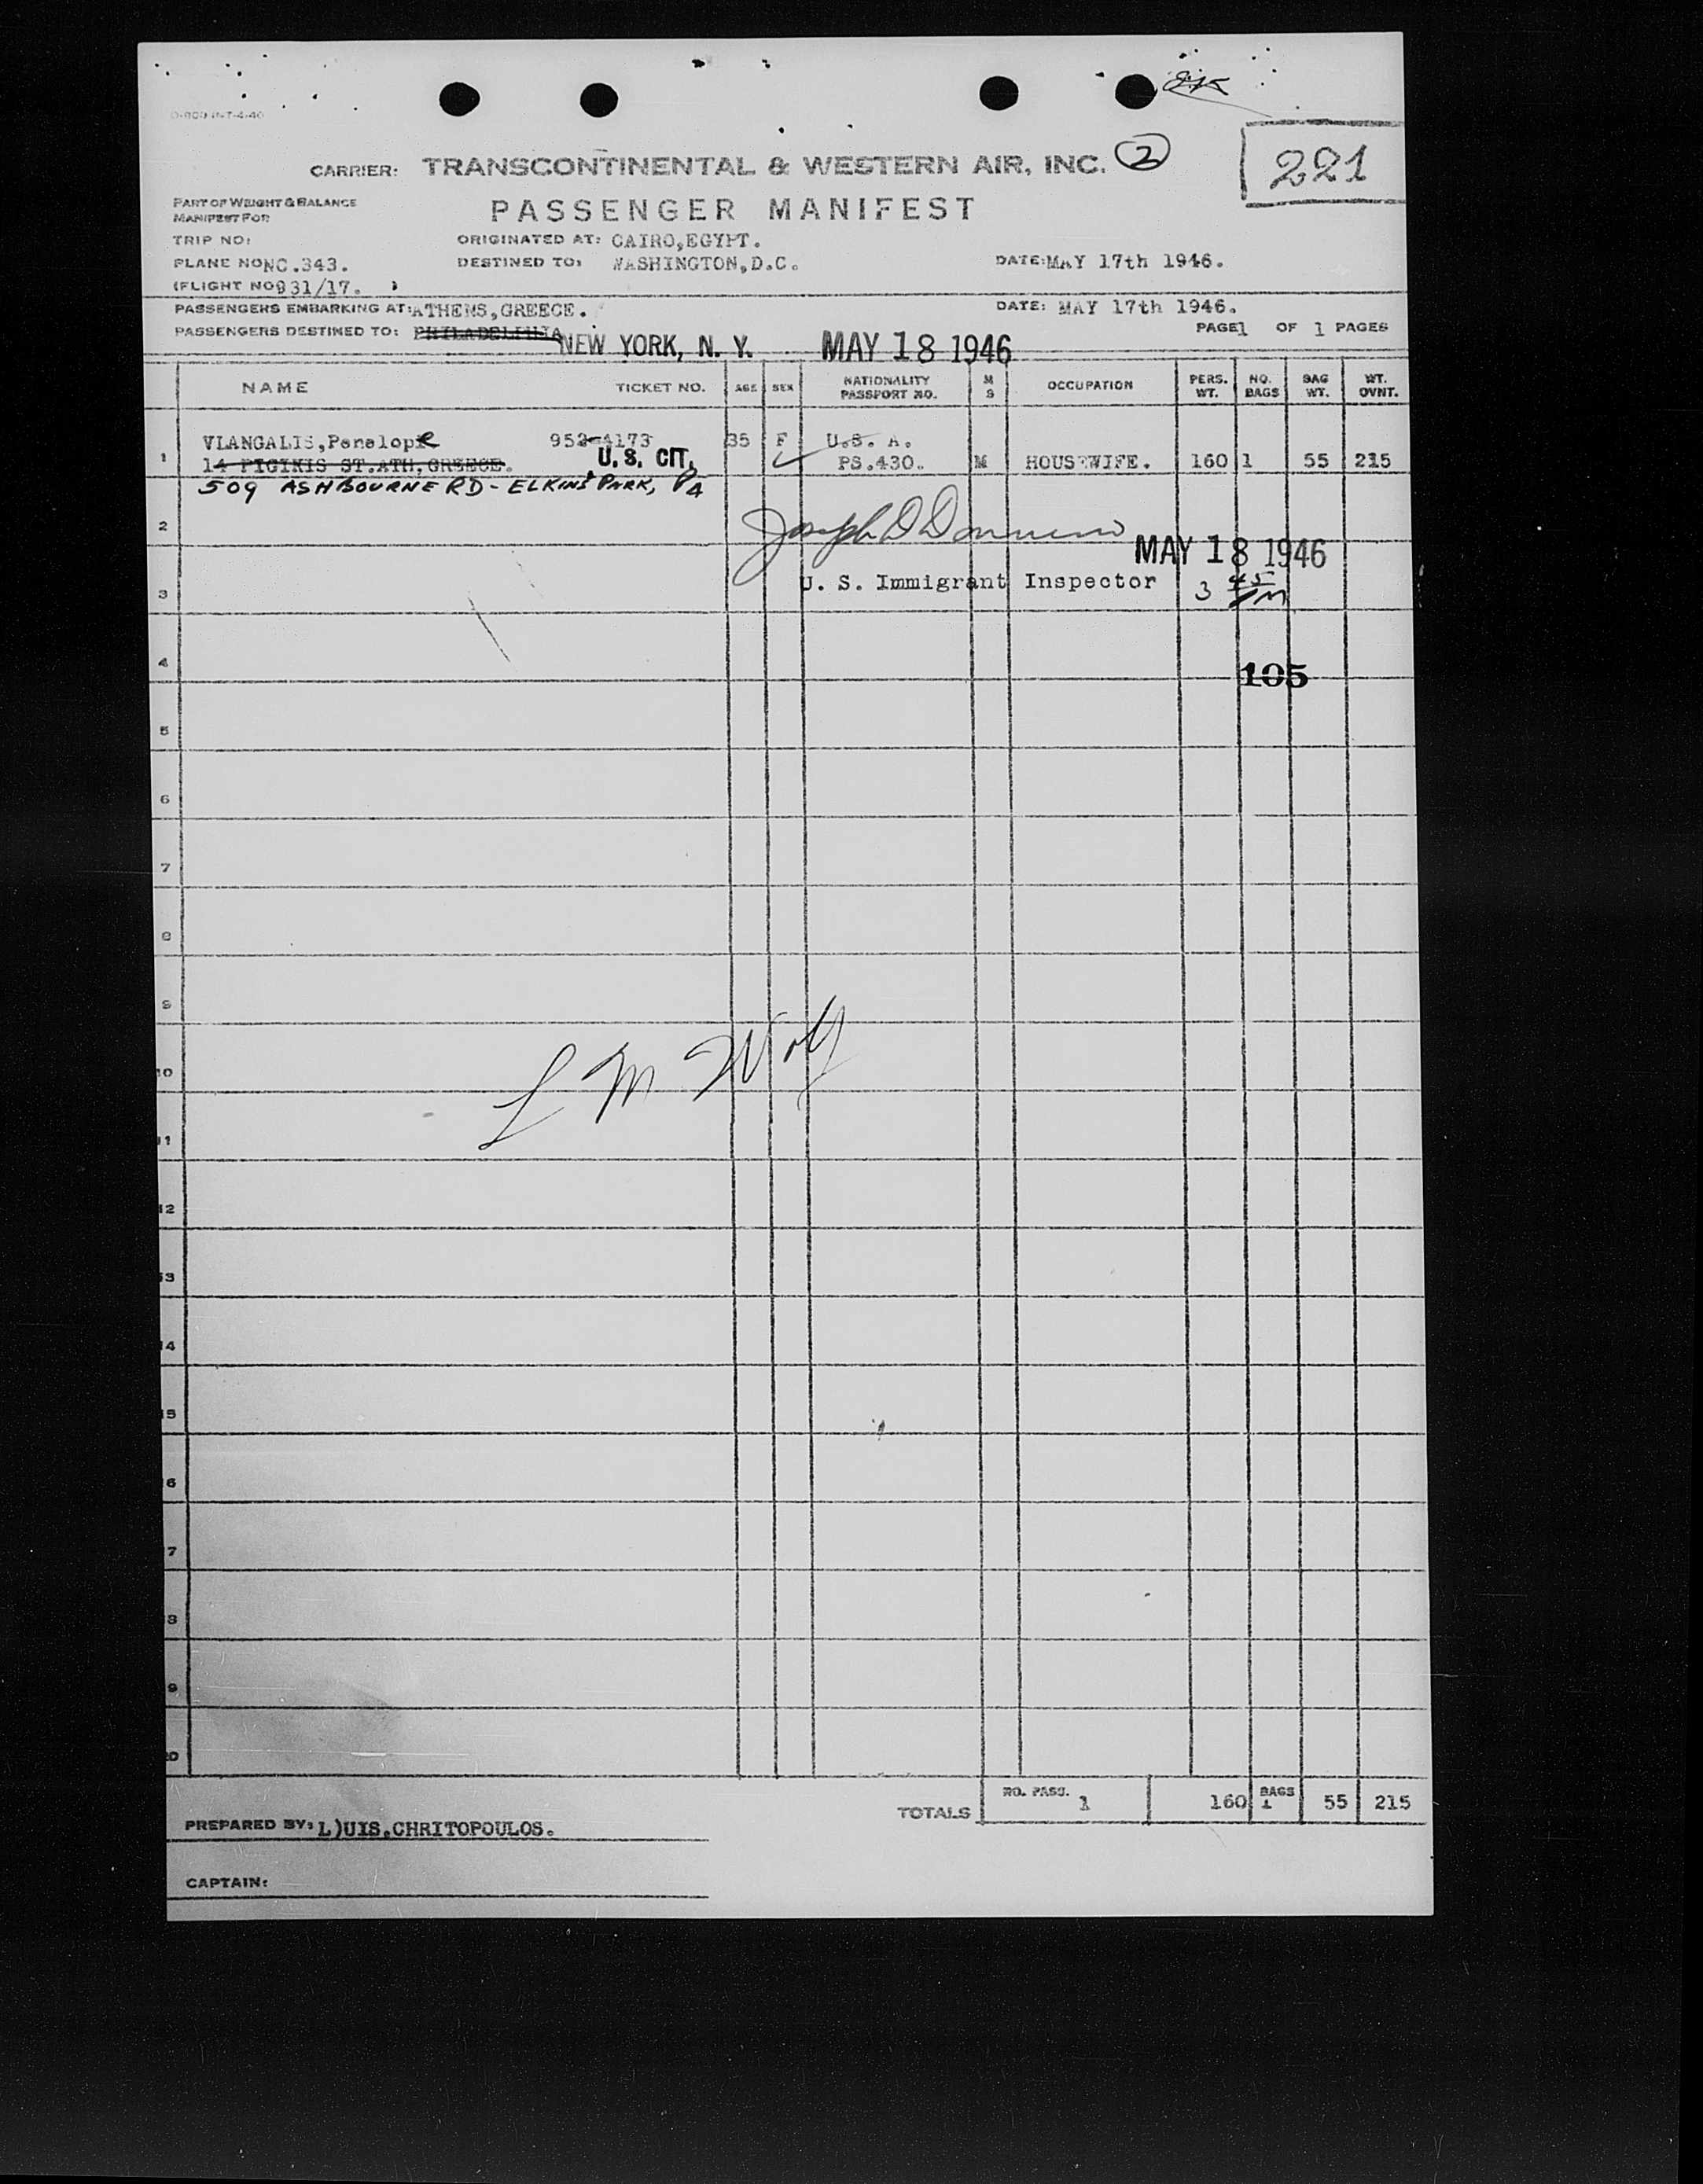 221
CARRIER: TRANSCONTINENTAL & WESTERN AIR, INC. 2
PART OF WEIGHT & BALANCE
MANIFEST FOR
PASSENGER MANIFEST
TRIP NO:
ORIGINATED AT: CAIRO,EGYPT.
PLANE NO NC.343.
DESTINED TO: WASHINGTON,D.C.
DATE: MAY 17th 1946.
(FLIGHT NO 931/17. )
PASSENGERS EMBARKING AT: ATHENS,GREECE.
DATE: MAY 17th 1946.
PASSENGERS DESTINED TO: PHILADELPHIA NEW YORK, N. Y. MAY 18 1946
PAGE 1 OF 1 PAGES
NAME TICKET NO. AGE SEX NATIONALITY PASSPORT NO. M S OCCUPATION PERS. WT. NO. BAGS BAG WT. WT. OVNT.
1 VLANGALIS,Penelope 952-4173 35 F U.S. A.
14 PIGINIS ST.ATH,GREECE. U. S. CIT, PS.430. M HOUSEWIFE. 160 1 55 215
509 ASHBOURNE RD - ELKINS PARK, PA
2
MAY 18 1946
U. S. Immigrant Inspector
3 45 PM
3
4
105
5
6
7
8
9
L M Wolf
10
11
12
13
14
15
6
7
8
9
20
TOTALS NO. PASS. 1 160 BAGS 1 55 215
PREPARED BY: L)UIS.CHRITOPOULOS.
CAPTAIN: